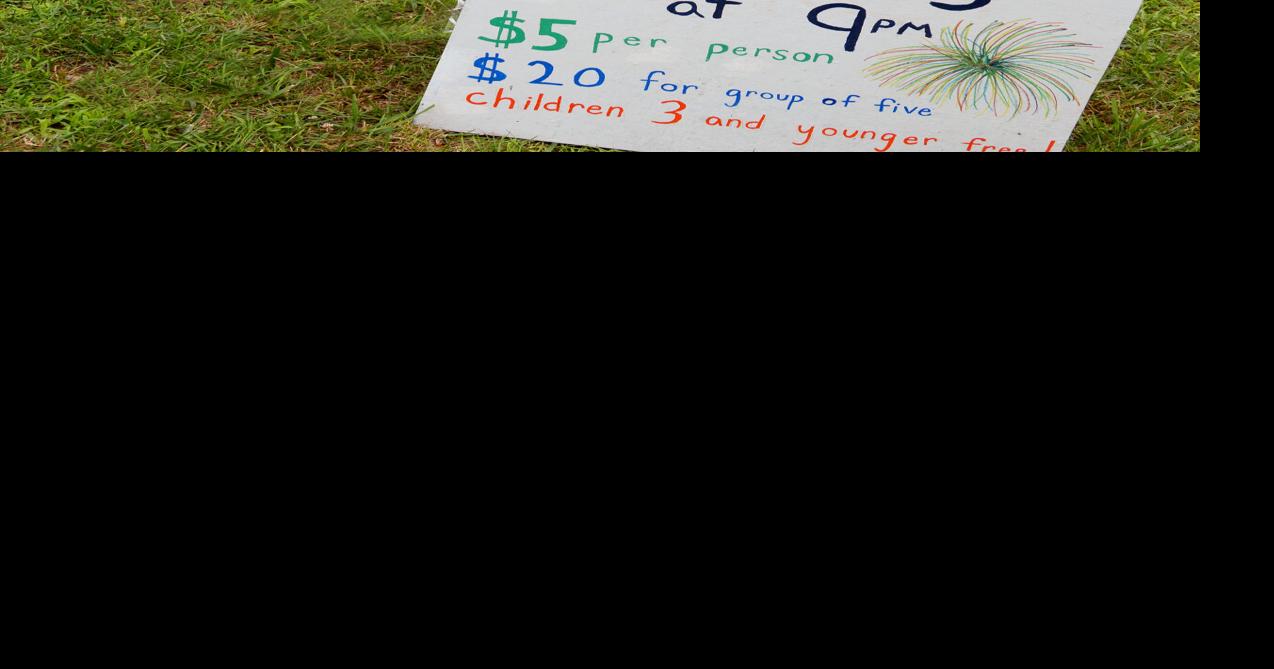 at 9PM
$5 per person
$20 for group of five
children 3 and younger free!